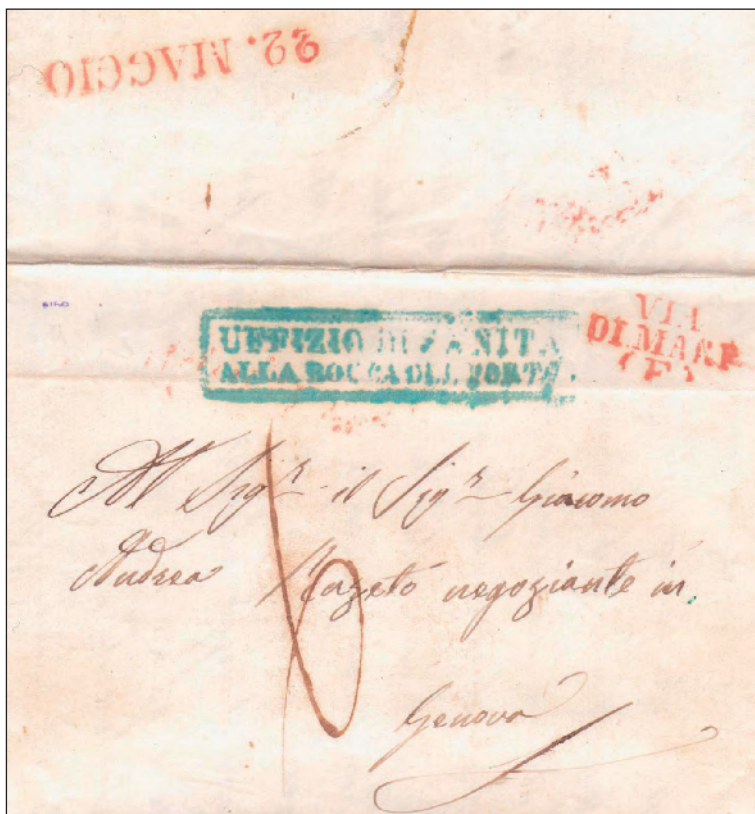 22. MAGGIO
UFFIZIO DI SANITA
ALLA BOCCA DEL PORTO
VIA
DI MARE
(E)
Al Sigr il Sigr Giacomo
Andrea negoziante in
6
Genova